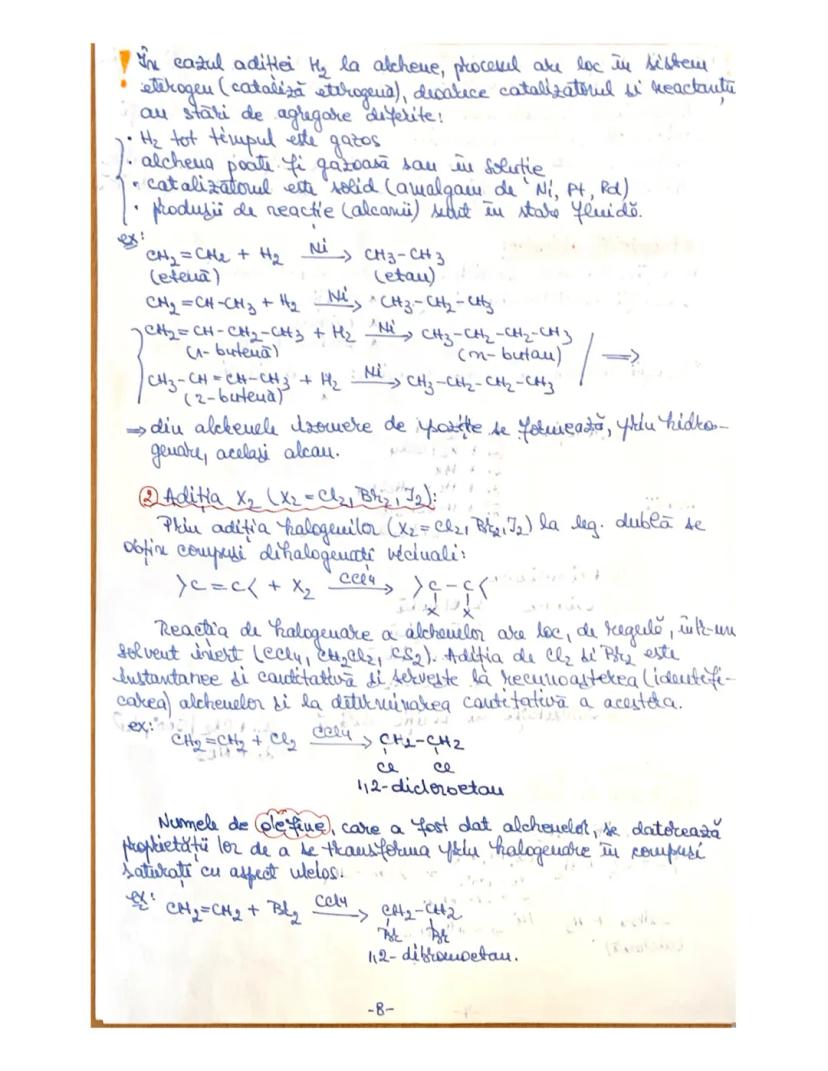 ! În cazul adiției H2 la alchene, procesul are loc în sistem
eterogen (cataliză eterogenă), deoarece catalizatorul si reactanții
au stări de agregare diferite:
• H2 tot timpul este gazos
• alchena poate fi gazoasă sau în soluție
• catalizatorul este solid (amalgam de Ni, Pt, Pd)
• produșii de reacție (alcanii) sunt în stare fluidă.
ex:
CH2=CH2 + H2 —Ni→ CH3-CH3
(etenă) (etan)
CH2=CH-CH3 + H2 —Ni→ CH3-CH2-CH3
CH2=CH-CH2-CH3 + H2 —Ni→ CH3-CH2-CH2-CH3
(1-butenă) (n-butan) ⇒
CH3-CH=CH-CH3 + H2 —Ni→ CH3-CH2-CH2-CH3
(2-butenă)
⇒ din alchenele izomere de poziție se formează, prin hidro-
genare, același alcan.
② Adiția X2 (X2=Cl2, Br2, I2):
Prin adiția halogenilor (X2=Cl2, Br2, I2) la leg. dublă se
obțin compuși dihalogenați vicinali:
>C=C< + X2 —CCl4→ >C-C<
X X
Reacția de halogenare a alchenelor are loc, de regulă, într-un
solvent inert (CCl4, CH2Cl2, CS2). Adiția de Cl2 si Br2 este
instantanee si cantitativă si servește la recunoasterea (identifi-
carea) alchenelor si la determinarea cantitativă a acestora.
ex:
CH2=CH2 + Cl2 —CCl4→ CH2-CH2
Cl Cl
1,2-dicloroetan
Numele de olefine, care a fost dat alchenelor, se datorează
proprietății lor de a se transforma prin halogenare în compuși
saturați cu aspect uleios.
ex:
CH2=CH2 + Br2 —CCl4→ CH2-CH2
Br Br
1,2-dibromoetan.
-8-